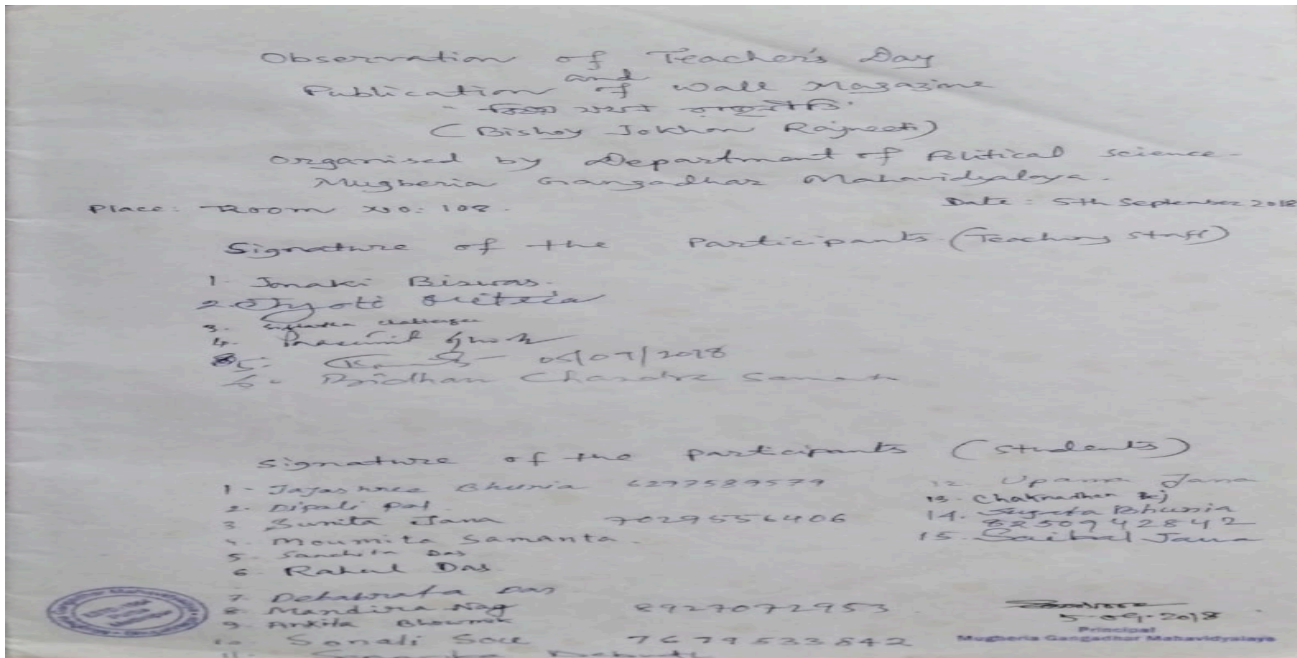 Observation of Teacher's Day
and
Publication of Wall Magazine
বিষয় যখন রাজনীতি
(Bishoy Jokhon Rajneeti)
Organised by Department of Political Science.
Mugberia Gangadhar Mahavidyalaya.
Place: Room No: 108.
Date: 5th September 2018
Signature of the Participants (Teaching Staff)
1. Jonaki Biswas.
2. Jyoti
3. Chatterjee
4. Prasenjit Ghosh
5. 05/09/2018
6. Bidhan Chandra Samanta
Signature of the Participants (Students)
1. Jajashree Bhunia 6297589579
2. Dipali Pal
3. Sunita Jana 7029556406
4. Moumita Samanta.
5. Sanchita Das
6. Rahul Das
7. Debabrata Das
8. Mandira Nag 8927072953
9. Ankita Bhowmik
10. Sonali 7679533842
11.
12. Upama Jana
13.
14. Sujata Bhunia
8250942842
15. Saibal Jana
5-09-2018
Principal
Mugberia Gangadhar Mahavidyalaya